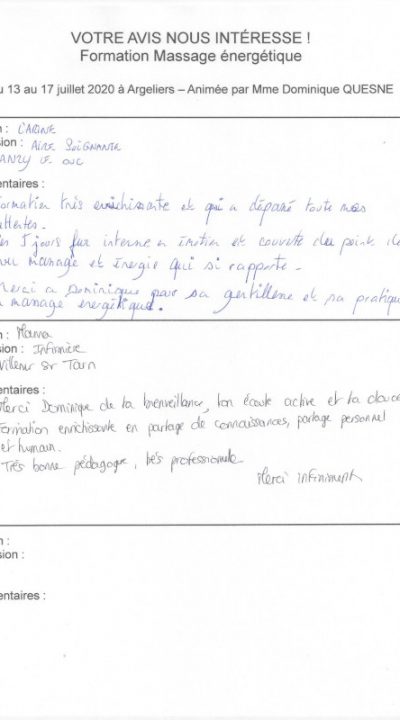 VOTRE AVIS NOUS INTÉRESSE !
Formation Massage énergétique
u 13 au 17 juillet 2020 à Argeliers – Animée par Mme Dominique QUESNE
: CARINE
sion : AIDE SOIGNANTE
entaires :
formation très enrichissante et qui a dépassé toute mes
attentes.
5 jours fur intense en émotion et couverte du point de
massage et énergie qui si rapporte.
Merci a Dominique pour sa gentillesse et sa pratique
massage énergétique.
n :
sion : Infirmière
Villemur sr Tarn
entaires :
Merci Dominique de ta bienveillance, ton écoute active et ta douce
Formation enrichissante en partage de connaissances, partage personnel
et humain.
Très bonne pédagogue, très professionnelle
Merci infiniment
n :
sion :
entaires :